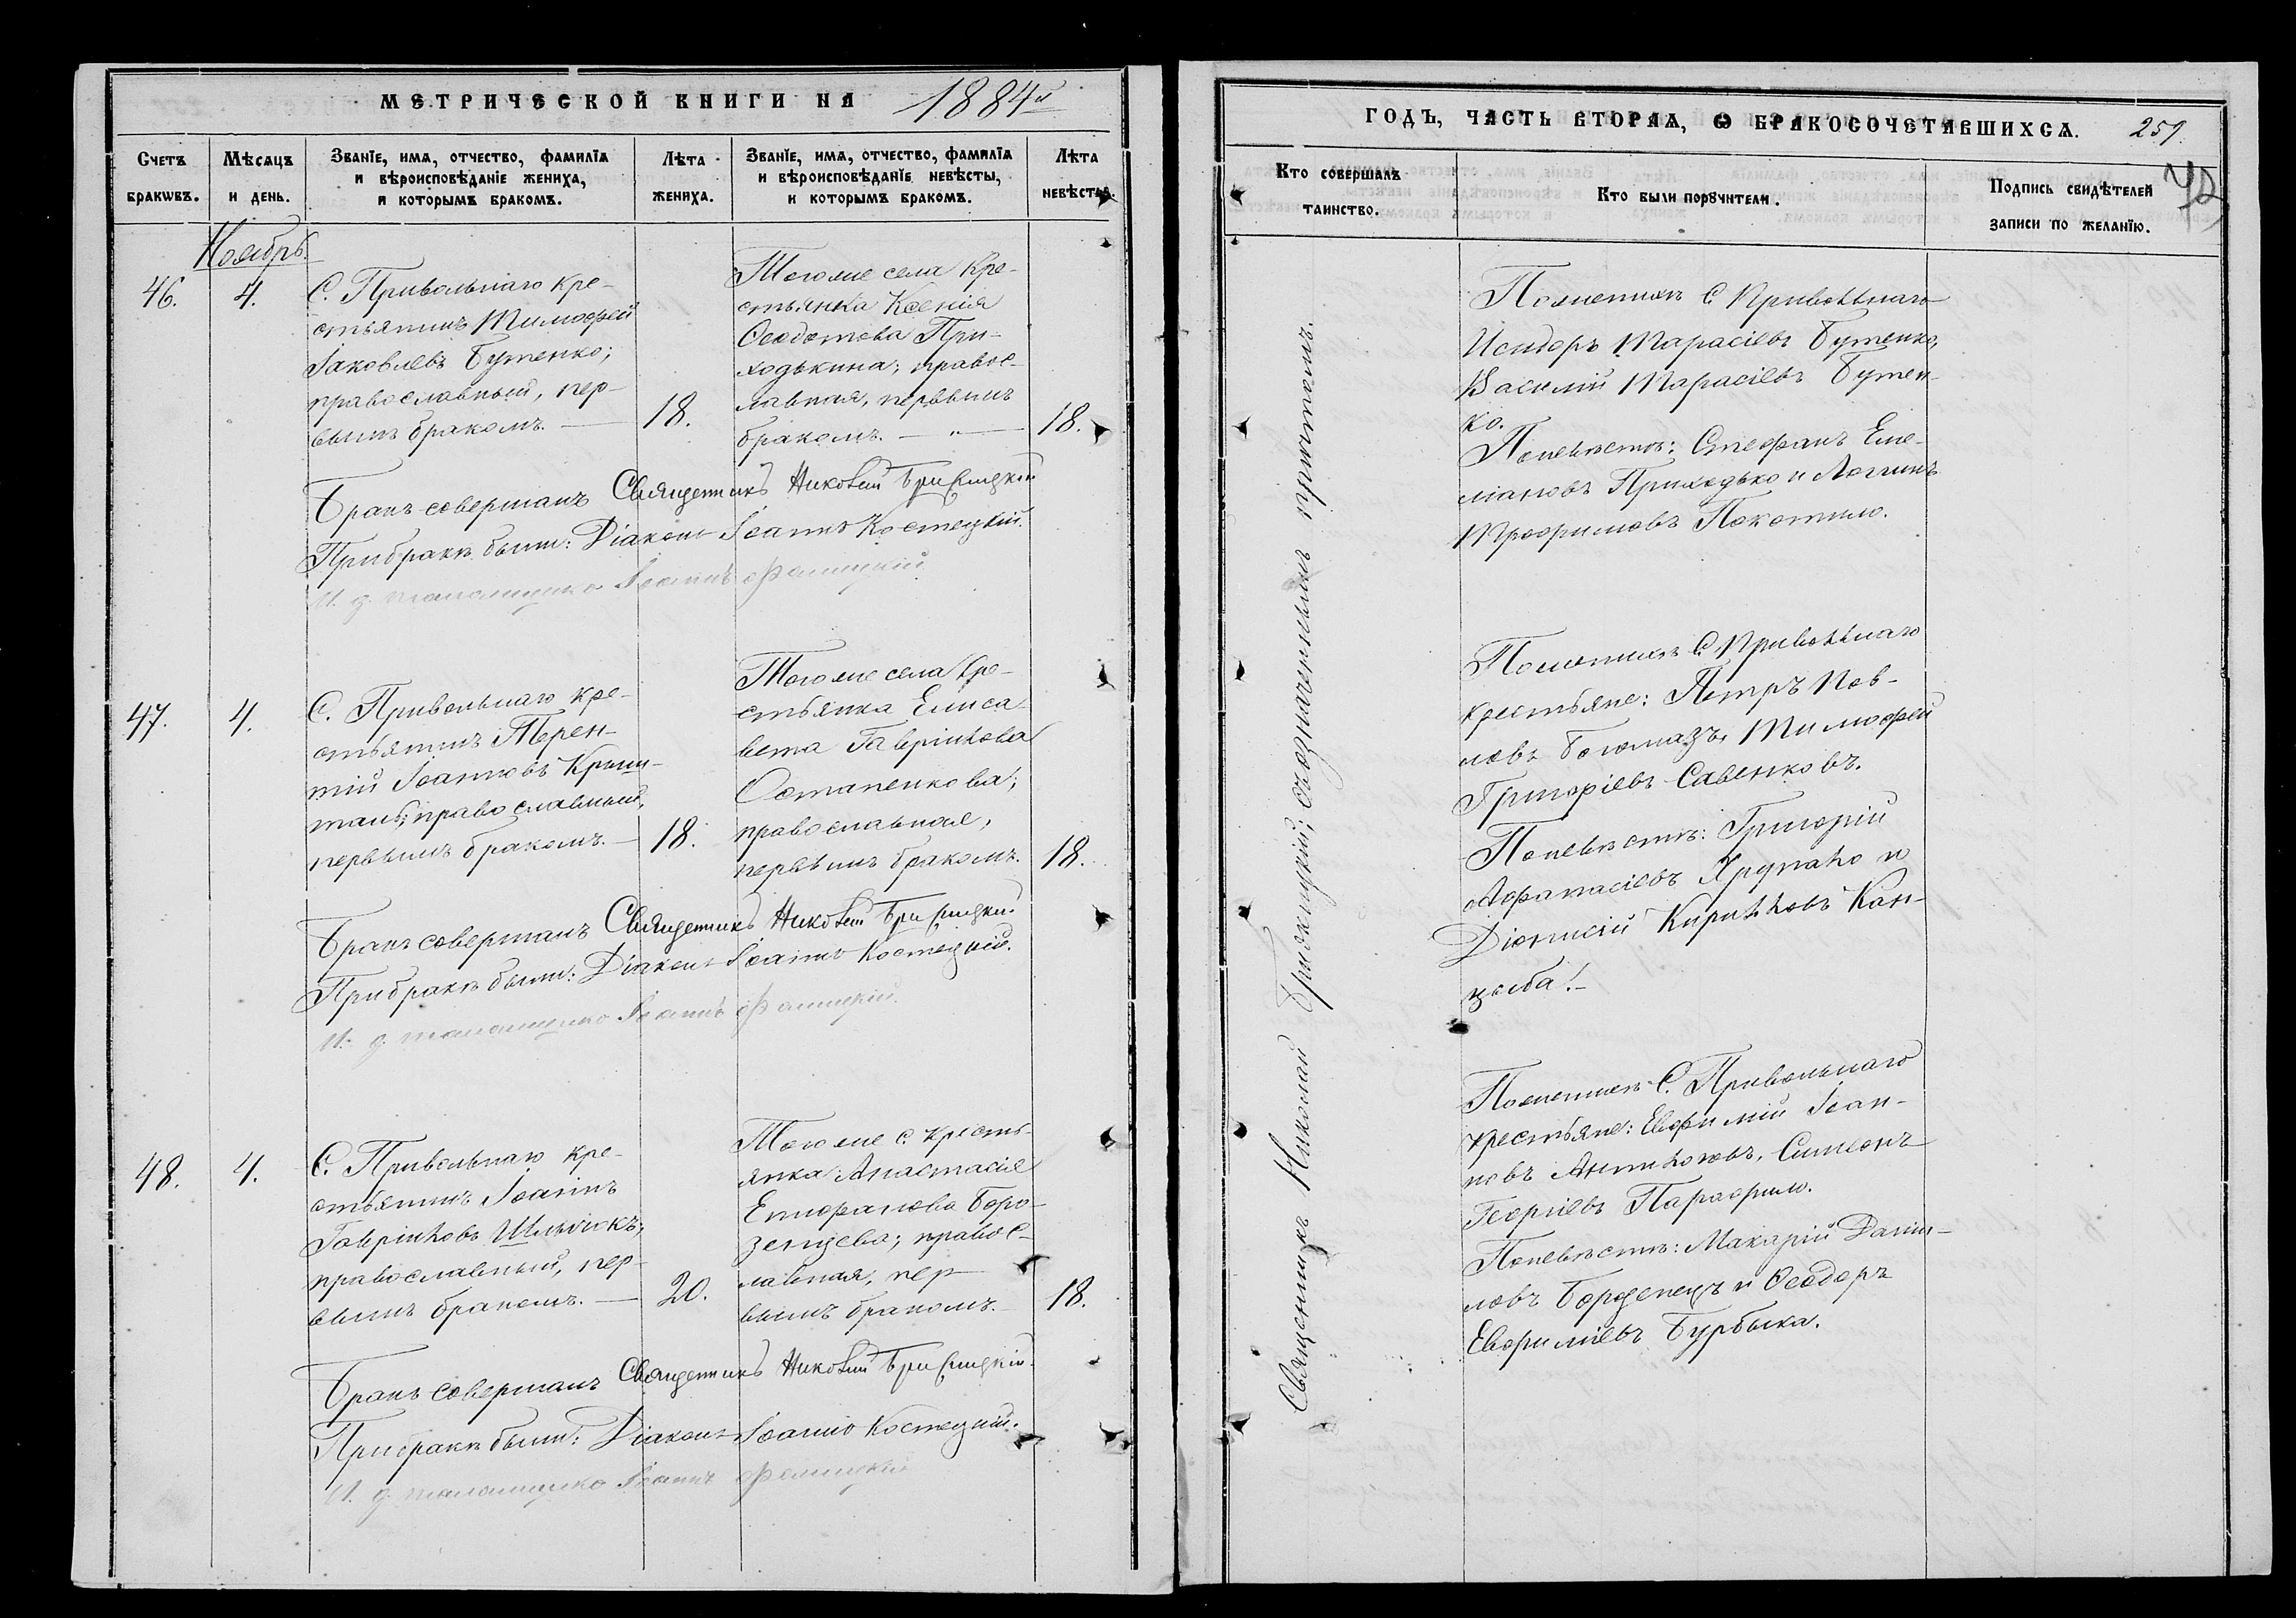 МЕТРИЧЕСКОЙ КНИГИ НА 1884й
Счетъ браковъ.
Мѣсяцъ и день.
Званїе, имя, отчество, фамилїя
и вѣроисповѣданїе жениха,
и которымъ бракомъ.
Лѣта жениха.
Званїе, имя, отчество, фамилїя
и вѣроисповѣданїе невѣсты,
и которымъ бракомъ.
Лѣта невѣсты.
Ноябрь
46.
4.
С. Привольнаго кре-
стьянинъ Тимоѳей
Іаковлевъ Бутенко;
православный, пер-
вымъ бракомъ. —
18.
Тогоже села кре-
стьянка Ксенія
Ѳеодотова При-
ходькина; правос-
лавная, первымъ
бракомъ. — „ —
18.
Бракъ совершалъ Священникъ Николай
При бракѣ были: Діаконъ Іоаннъ Костецкій.
И. д. псаломщика Іоаннъ
47.
4.
С. Привольнаго кре-
стьянинъ Терен-
тій Іоанновъ
православный,
первымъ бракомъ. —
18.
Тогоже села кре-
стьянка Елиса-
вета Гавріилова
Остапенкова;
православная,
первымъ бракомъ.
18.
Бракъ совершалъ Священникъ Николай
При бракѣ были: Діаконъ Іоаннъ Костецкій.
И. д. псаломщика Іоаннъ
48.
4.
С. Привольнаго кре-
стьянинъ Іоаннъ
Гавріиловъ
православный, пер-
вымъ бракомъ. —
20.
Тогоже с. кресть-
янка Анастасія
Епифанова Боро-
зенцева; правос-
лавная, пер-
вымъ бракомъ. —
18.
Бракъ совершалъ Священникъ Николай
При бракѣ были: Діаконъ Іоаннъ Костецкій.
И. д. псаломщика Іоаннъ
ГОДЪ, ЧАСТЬ ВТОРАЯ, Ѡ БРАКОСОЧЕТАВШИХСЯ. 259.
Кто совершалъ таинство.
Кто были порꙋчители.
Подпись свидѣтелей
записи по желанїю.
Священникъ Николай съ означеннымъ причтомъ.
По женихѣ С. Привольнаго
Исидоръ Тарасіевъ Бутенко,
Василій Тарасіевъ Бутен-
ко.
По невѣстѣ: Стефанъ Еме-
ліановъ Приходько и Логгинъ
Трофимовъ Покотило.
По женихѣ С. Привольнаго
крестьяне: Петръ Пав-
ловъ Богомазъ, Тимоѳей
Григоріевъ Савенковъ.
По невѣстѣ: Григорій
Аѳанасіевъ и
Діонисій Кирилловъ Кан-
цыба. —
По женихѣ С. Привольнаго
крестьяне: Евфимій Іоан-
новъ Симеонъ
Георгіевъ Парафило.
По невѣстѣ: Макарій Дани-
ловъ и Ѳеодоръ
Евфиміевъ Бурбыка.